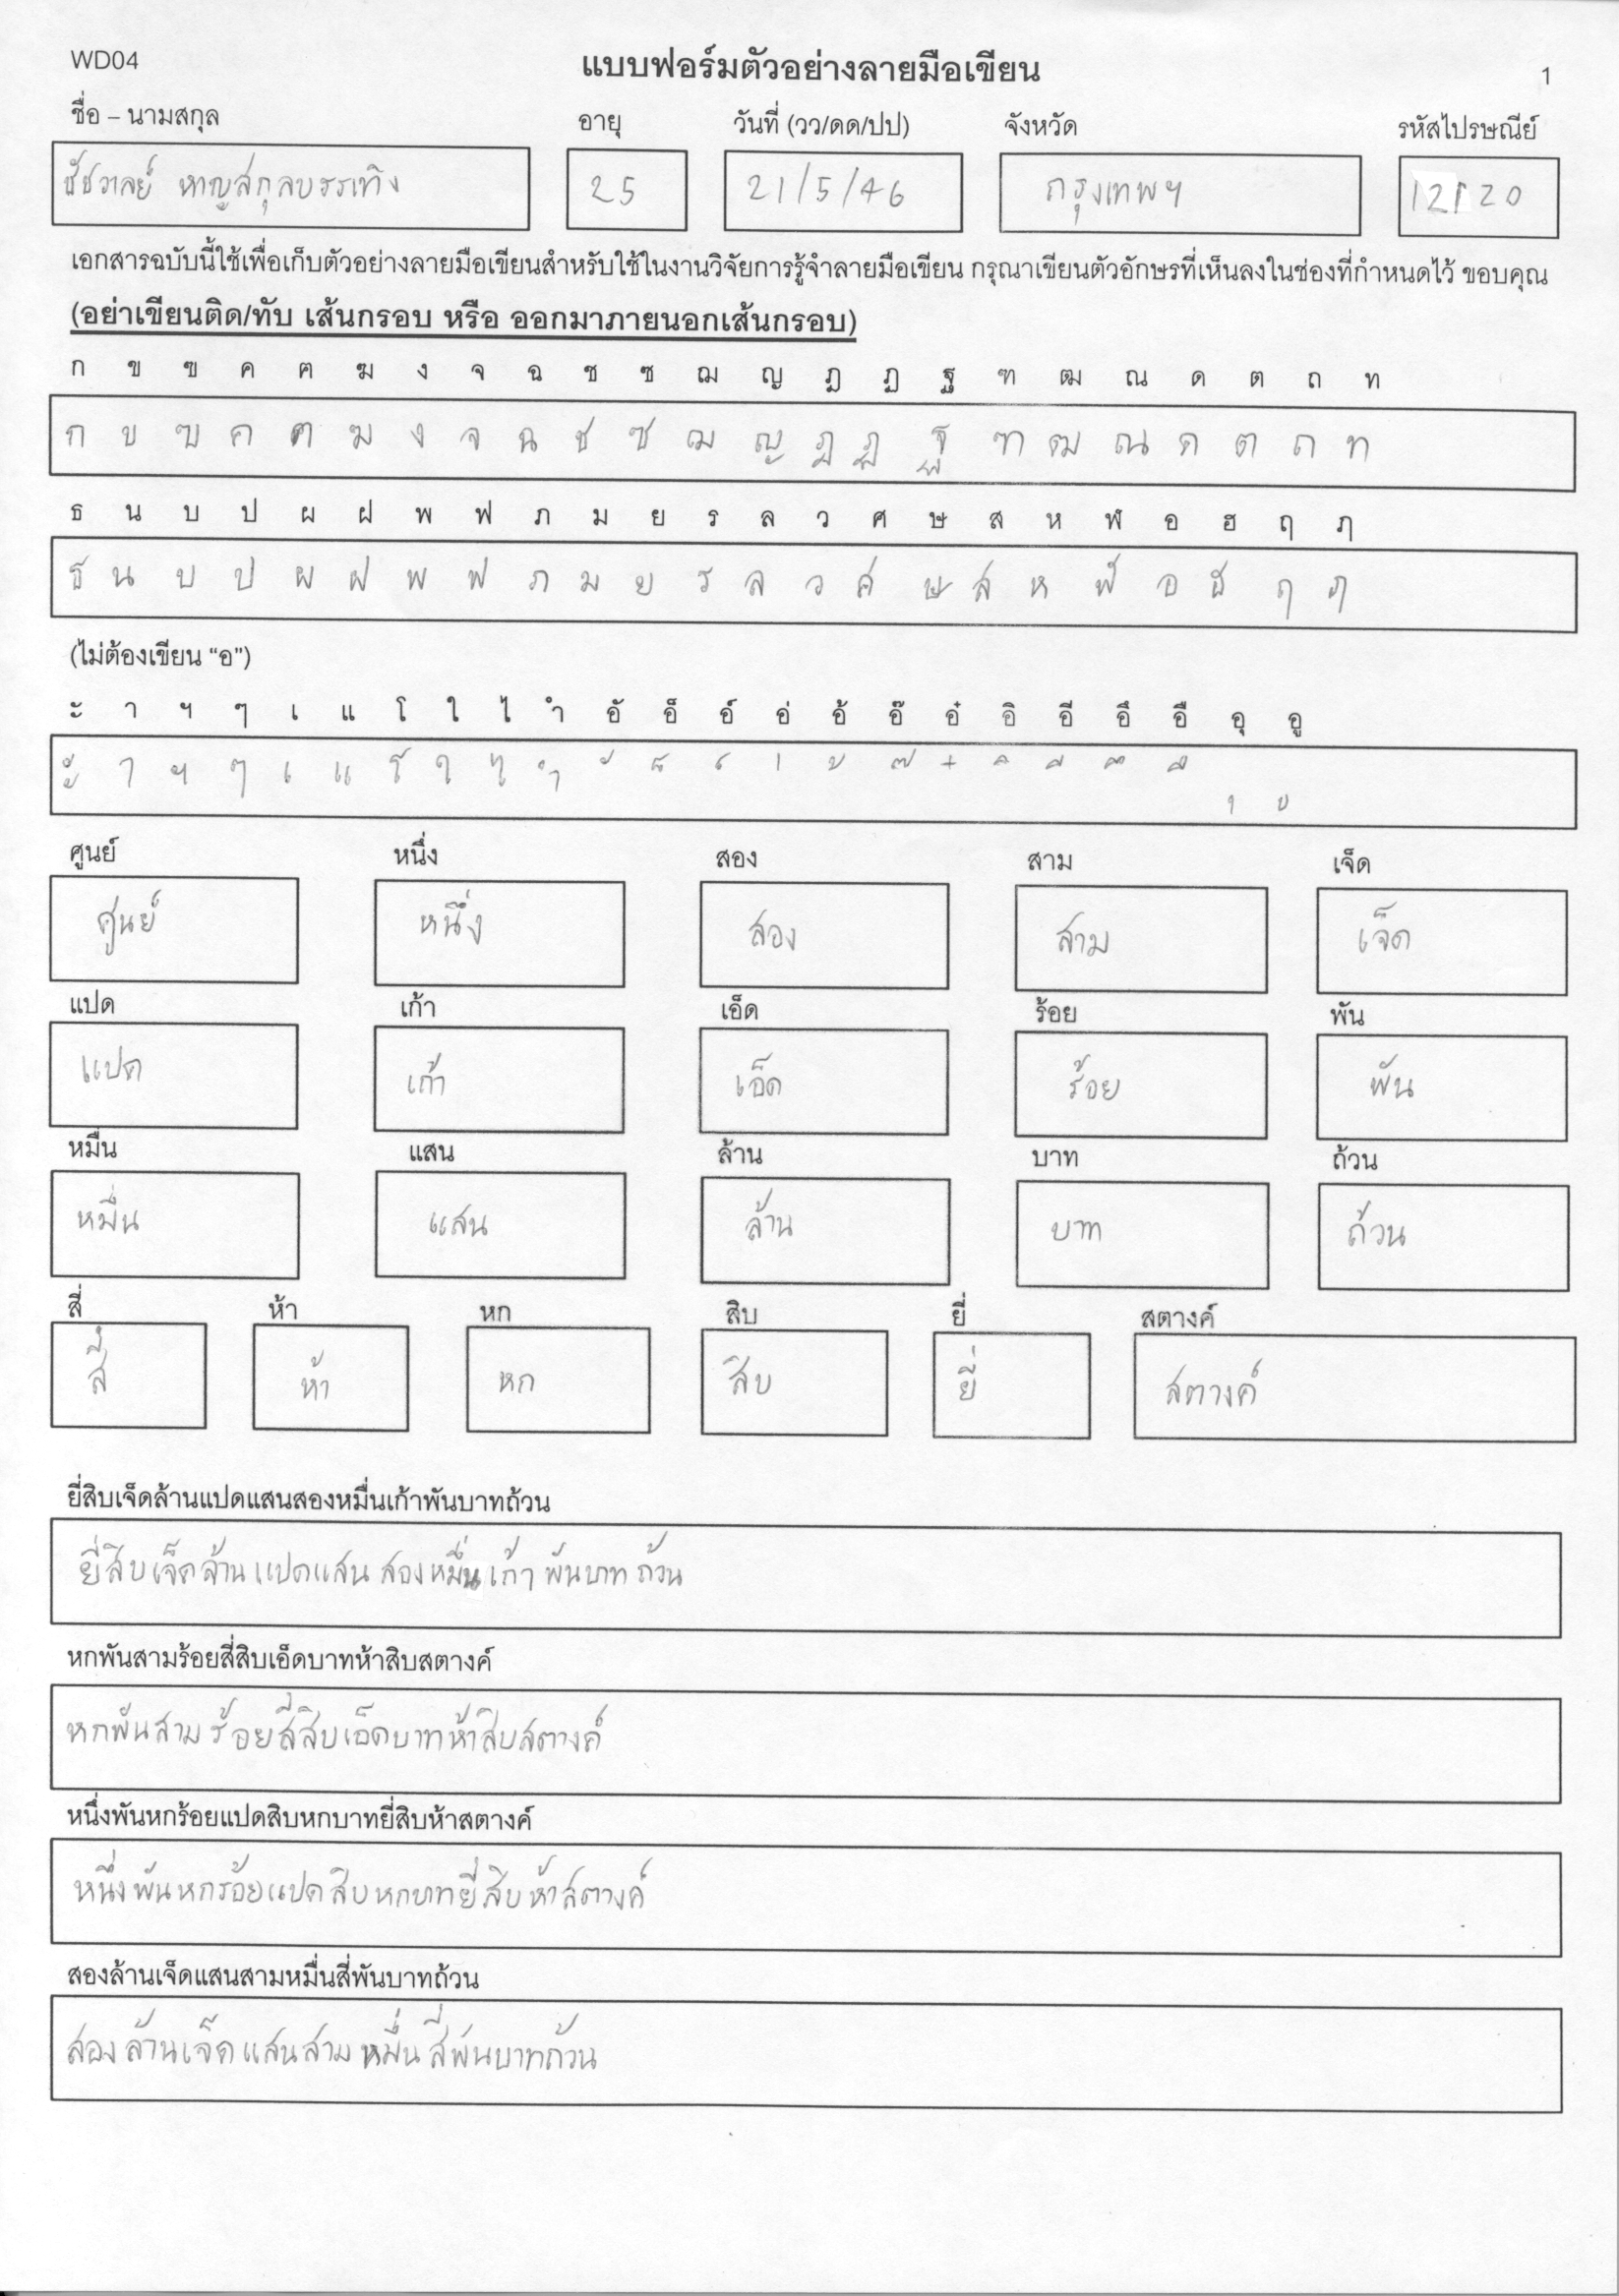 WD04 แบบฟอร์มตัวอย่างลายมือเขียน 1
ชื่อ – นามสกุล อายุ วันที่ (วว/ดด/ปป) จังหวัด รหัสไปรษณีย์
ชัชวาลย์ หาญสกุลบรรเทิง 25 21/5/46 กรุงเทพฯ 12120
เอกสารฉบับนี้ใช้เพื่อเก็บตัวอย่างลายมือเขียนสำหรับใช้ในงานวิจัยการรู้จำลายมือเขียน กรุณาเขียนตัวอักษรที่เห็นลงในช่องที่กำหนดไว้ ขอบคุณ
(อย่าเขียนติด/ทับ เส้นกรอบ หรือ ออกมาภายนอกเส้นกรอบ)
ก ข ฃ ค ฅ ฆ ง จ ฉ ช ซ ฌ ญ ฎ ฏ ฐ ฑ ฒ ณ ด ต ถ ท
ก ข ฃ ค ฅ ฆ ง จ ฉ ช ซ ฌ ญ ฎ ฏ ฐ ฑ ฒ ณ ด ต ถ ท
ธ น บ ป ผ ฝ พ ฟ ภ ม ย ร ล ว ศ ษ ส ห ฬ อ ฮ ฤ ฦ
ธ น บ ป ผ ฝ พ ฟ ภ ม ย ร ล ว ศ ษ ส ห ฬ อ ฮ ฤ ฦ
(ไม่ต้องเขียน “อ”)
ะ า ฯ ๆ เ แ โ ใ ไ ำ อั อ็ อ์ อ่ อ้ อ๊ อ๋ อิ อี อึ อื อุ อู
ะ า ฯ ๆ เ แ โ ใ ไ ำ ั ็ ์ ่ ้ ๊ ๋ ิ ี ึ ื ุ ู
ศูนย์ หนึ่ง สอง สาม เจ็ด
ศูนย์ หนึ่ง สอง สาม เจ็ด
แปด เก้า เอ็ด ร้อย พัน
แปด เก้า เอ็ด ร้อย พัน
หมื่น แสน ล้าน บาท ถ้วน
หมื่น แสน ล้าน บาท ถ้วน
สี่ ห้า หก สิบ ยี่ สตางค์
สี่ ห้า หก สิบ ยี่ สตางค์
ยี่สิบเจ็ดล้านแปดแสนสองหมื่นเก้าพันบาทถ้วน
ยี่สิบเจ็ดล้านแปดแสนสองหมื่นเก้าพันบาทถ้วน
หกพันสามร้อยสี่สิบเอ็ดบาทห้าสิบสตางค์
หกพันสามร้อยสี่สิบเอ็ดบาทห้าสิบสตางค์
หนึ่งพันหกร้อยแปดสิบหกบาทยี่สิบห้าสตางค์
หนึ่งพันหกร้อยแปดสิบหกบาทยี่สิบห้าสตางค์
สองล้านเจ็ดแสนสามหมื่นสี่พันบาทถ้วน
สองล้านเจ็ดแสนสามหมื่นสี่พันบาทถ้วน